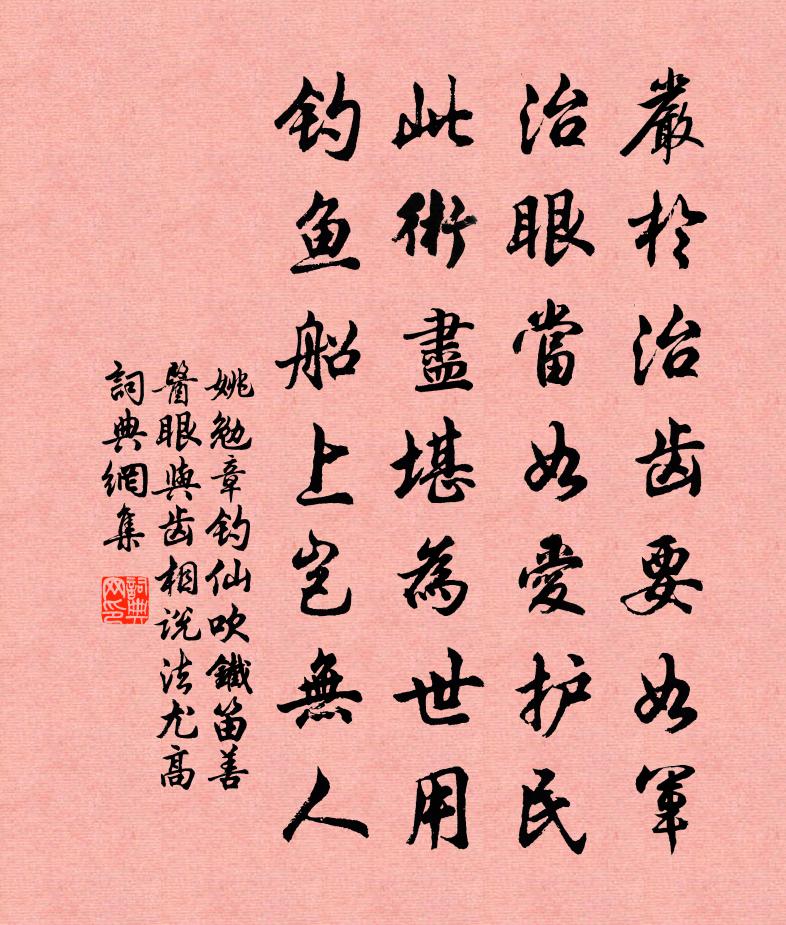 嚴於治齿要如軍
治眼當如愛护民
此術盡堪為世用
钓鱼船上岂無人
姚勉章钓仙吹鐵笛善
醫眼與齿相说法尤高
詞典網集
詞典
网印